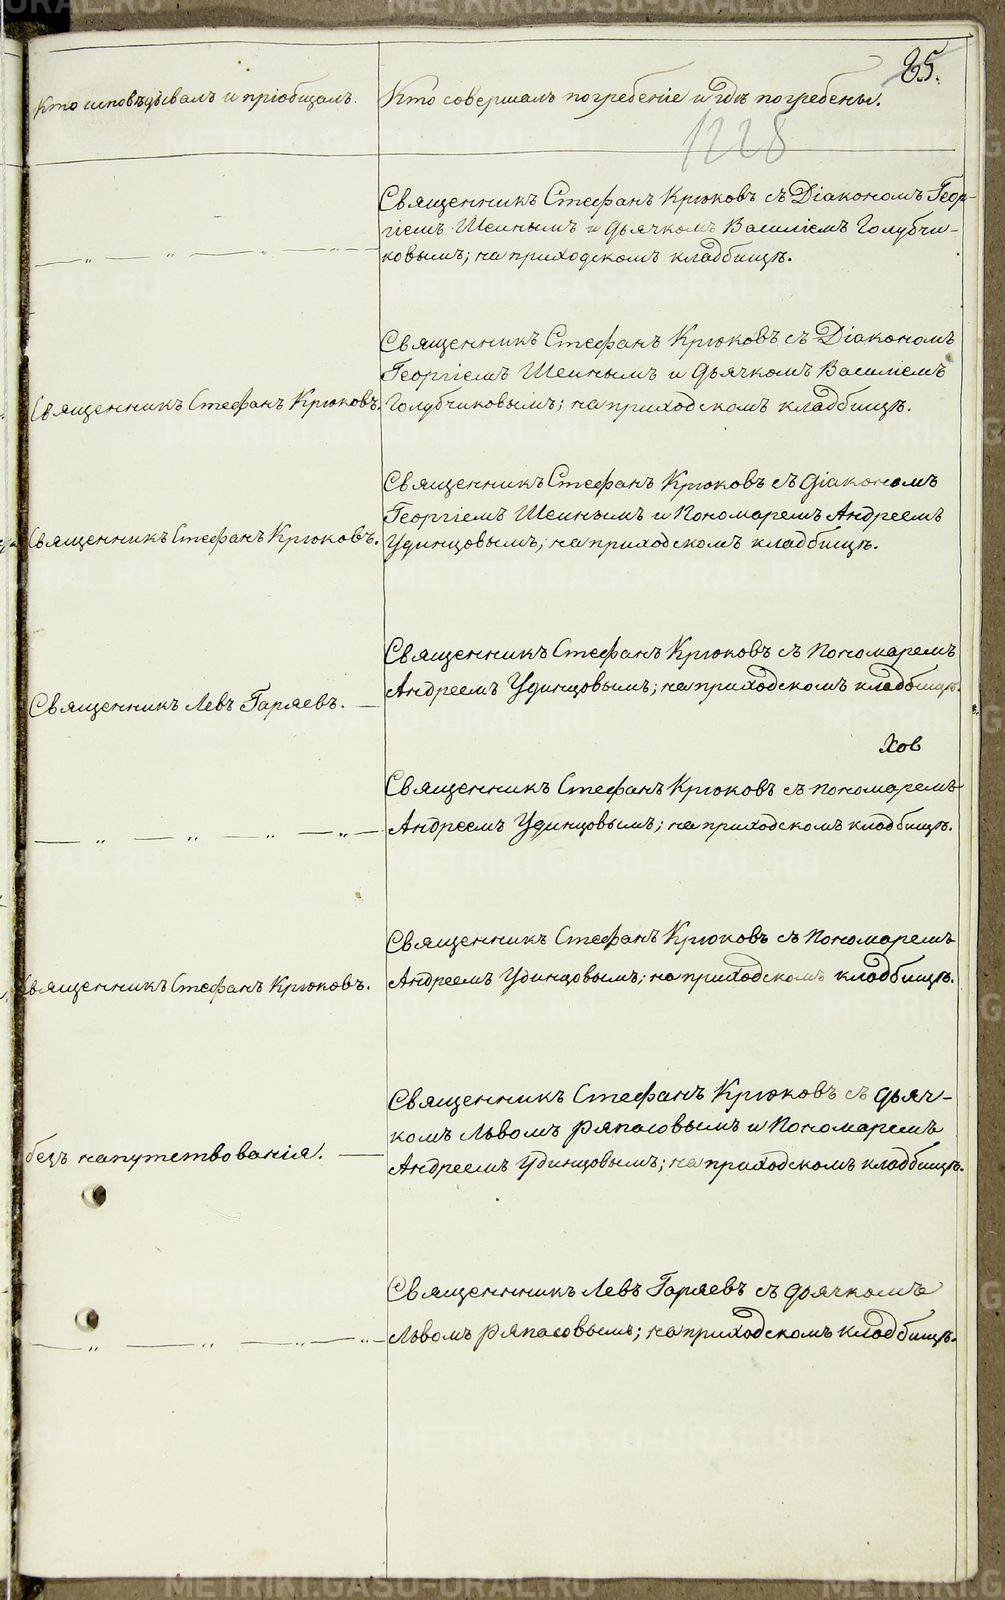 85.
Кто исповѣдывалъ и пріобщалъ.
Кто совершалъ погребеніе и гдѣ погребены.
1228
Священникъ Стефанъ Крюковъ съ Діакономъ Геор-
гіемъ Шеинымъ и дьячкомъ Василіемъ Голубчи-
ковымъ; на приходскомъ кладбищѣ.
Священникъ Стефанъ Крюковъ.
Священникъ Стефанъ Крюковъ съ Діакономъ
Георгіемъ Шеинымъ и дьячкомъ Василіемъ
Голубчиковымъ; на приходскомъ кладбищѣ.
Священникъ Стефанъ Крюковъ.
Священникъ Стефанъ Крюковъ съ діакономъ
Георгіемъ Шеинымъ и Пономаремъ Андреемъ
Удинцовымъ; на приходскомъ кладбищѣ.
Священникъ Левъ Гаряевъ.
Священникъ Стефанъ Крюковъ съ Пономаремъ
Андреемъ Удинцовымъ; на приходскомъ кладбищѣ.
Хов
Священникъ Стефанъ Крюковъ съ пономаремъ
Андреемъ Удинцовымъ; на приходскомъ кладбищѣ.
Священникъ Стефанъ Крюковъ.
Священникъ Стефанъ Крюковъ съ Пономаремъ
Андреемъ Удинцовымъ; на приходскомъ кладбищѣ.
безъ напутствованія.
Священникъ Стефанъ Крюковъ съ дьяч-
комъ Львомъ Ряпасовымъ и Пономаремъ
Андреемъ Удинцовымъ; на приходскомъ кладбищѣ.
Священникъ Левъ Гаряевъ съ дьячкомъ
Львомъ Ряпасовымъ; на приходскомъ кладбищѣ.
METRIKI.GASO-URAL.RU